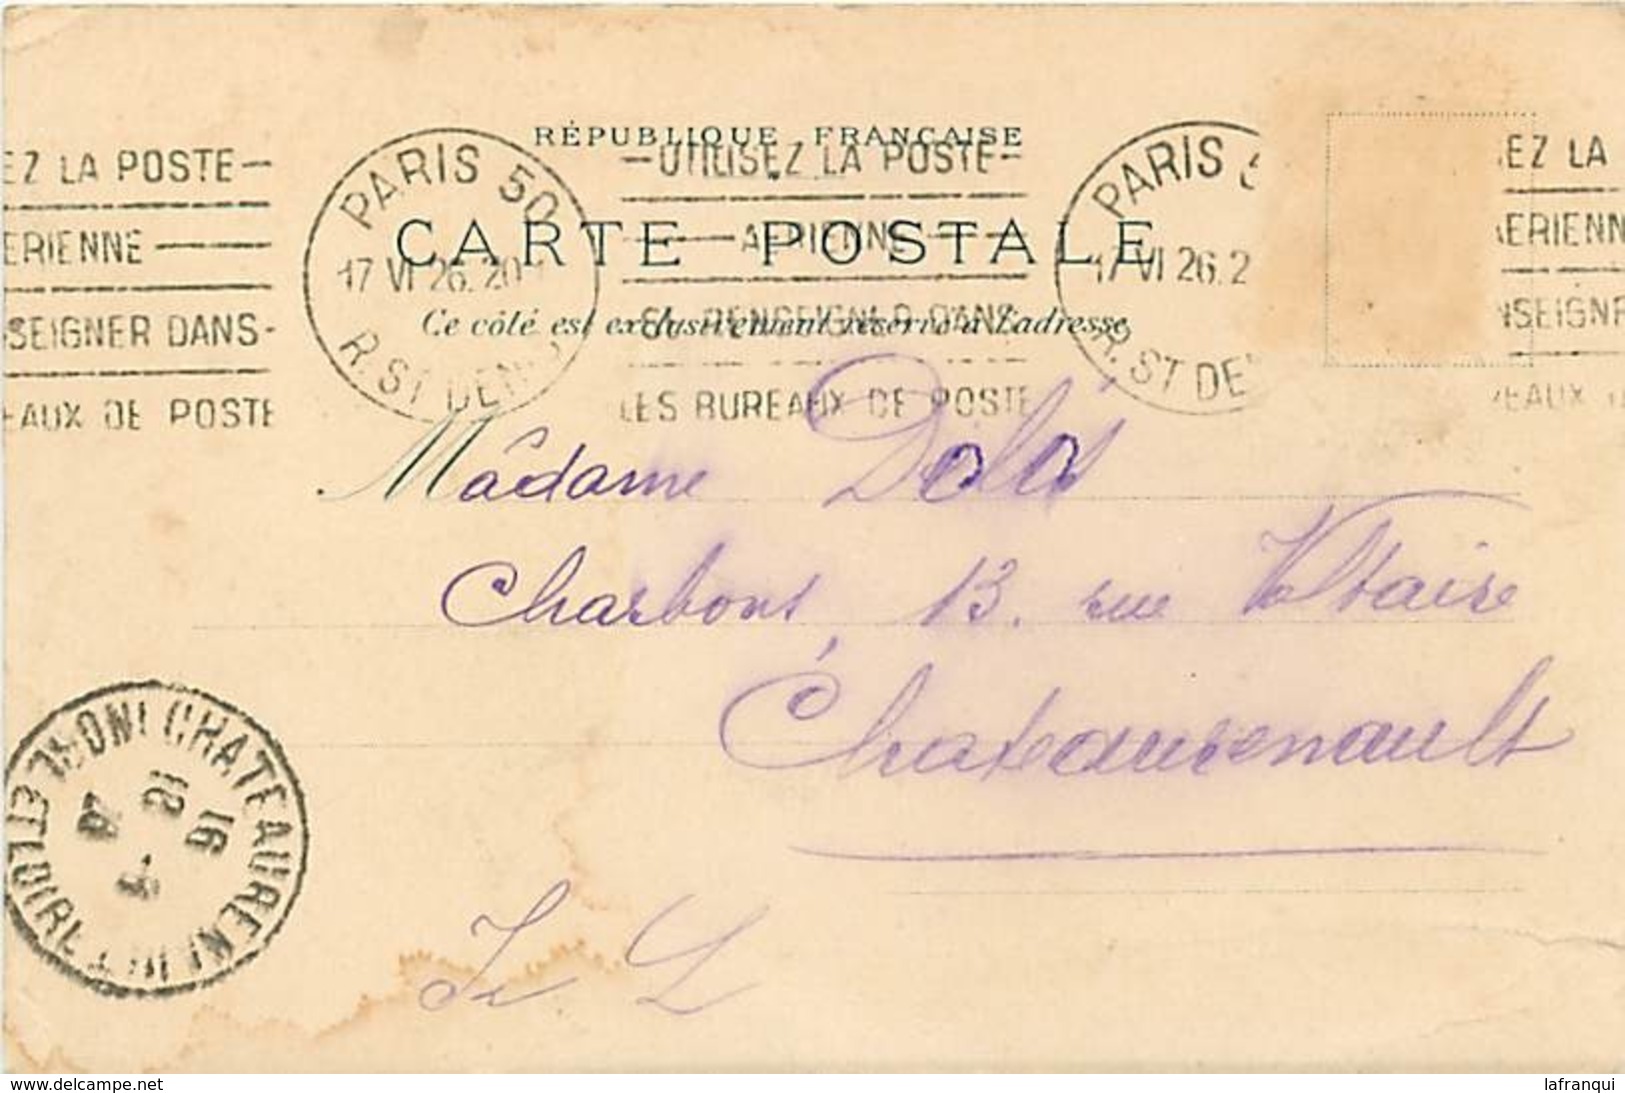 RÉPUBLIQUE FRANÇAISE
EZ LA POSTE
PARIS 50
UTILISEZ LA POSTE
PARIS 5
EZ LA
CARTE POSTALE
ERIENNE
AERIENN
17 VI 26. 20
17 VI 26. 2
Ce côté est exclusivement réservé à l'adresse
NSEIGNER DANS
SE RENSEIGNER DANS
NSEIGNE
R. ST DENIS
R. ST DE
EAUX DE POSTE
LES BUREAUX DE POSTE
EAUX D
Mâdame
Charbons, 13. rue Voltaire
Châteaurenault
CHATEAURENAULT
INDRE ET LOIRE
16
18
www.delcampe.net
lafranqui